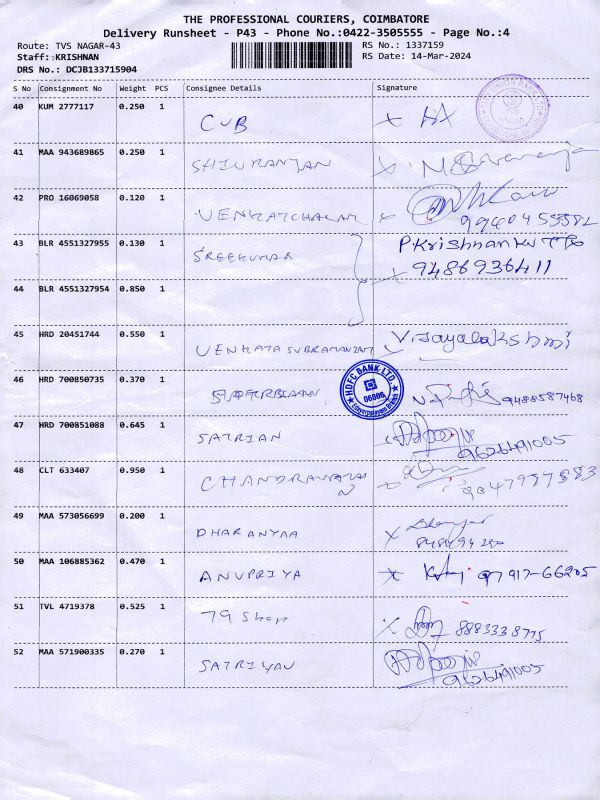 THE PROFESSIONAL COURIERS, COIMBATORE
Delivery Runsheet - P43 - Phone No.:0422-3505555 - Page No.:4
Route: TVS NAGAR-43 RS No.: 1337159
Staff: KRISHNAN RS Date: 14-Mar-2024
DRS No.: DCJB133715904
S No Consignment No Weight PCS Consignee Details Signature
40 KUM 2777117 0.250 1 CUB
41 MAA 943689865 0.250 1 SHIVRANJAN
42 PRO 16069058 0.120 1 VENKATCHALAM
43 BLR 4551327955 0.130 1 SREEKUMAR P.Krishnan Kutty
9486936411
44 BLR 4551327954 0.850 1
45 HRD 20451744 0.550 1 VENKATA SUBRAMANIAM Vijayalakshmi
46 HRD 700850735 0.370 1 9488587468
HDFC BANK LTD.
47 HRD 700851088 0.645 1 SATRIAN 9626491005
48 CLT 633407 0.950 1 CHANDRAN
49 MAA 573056699 0.200 1 DHARANYAA
50 MAA 106885362 0.470 1 ANUPRIYA 97917-66205
51 TVL 4719378 0.525 1 79 Shop 8883338775
52 MAA 571900335 0.270 1 SATRIYAN 9626491005